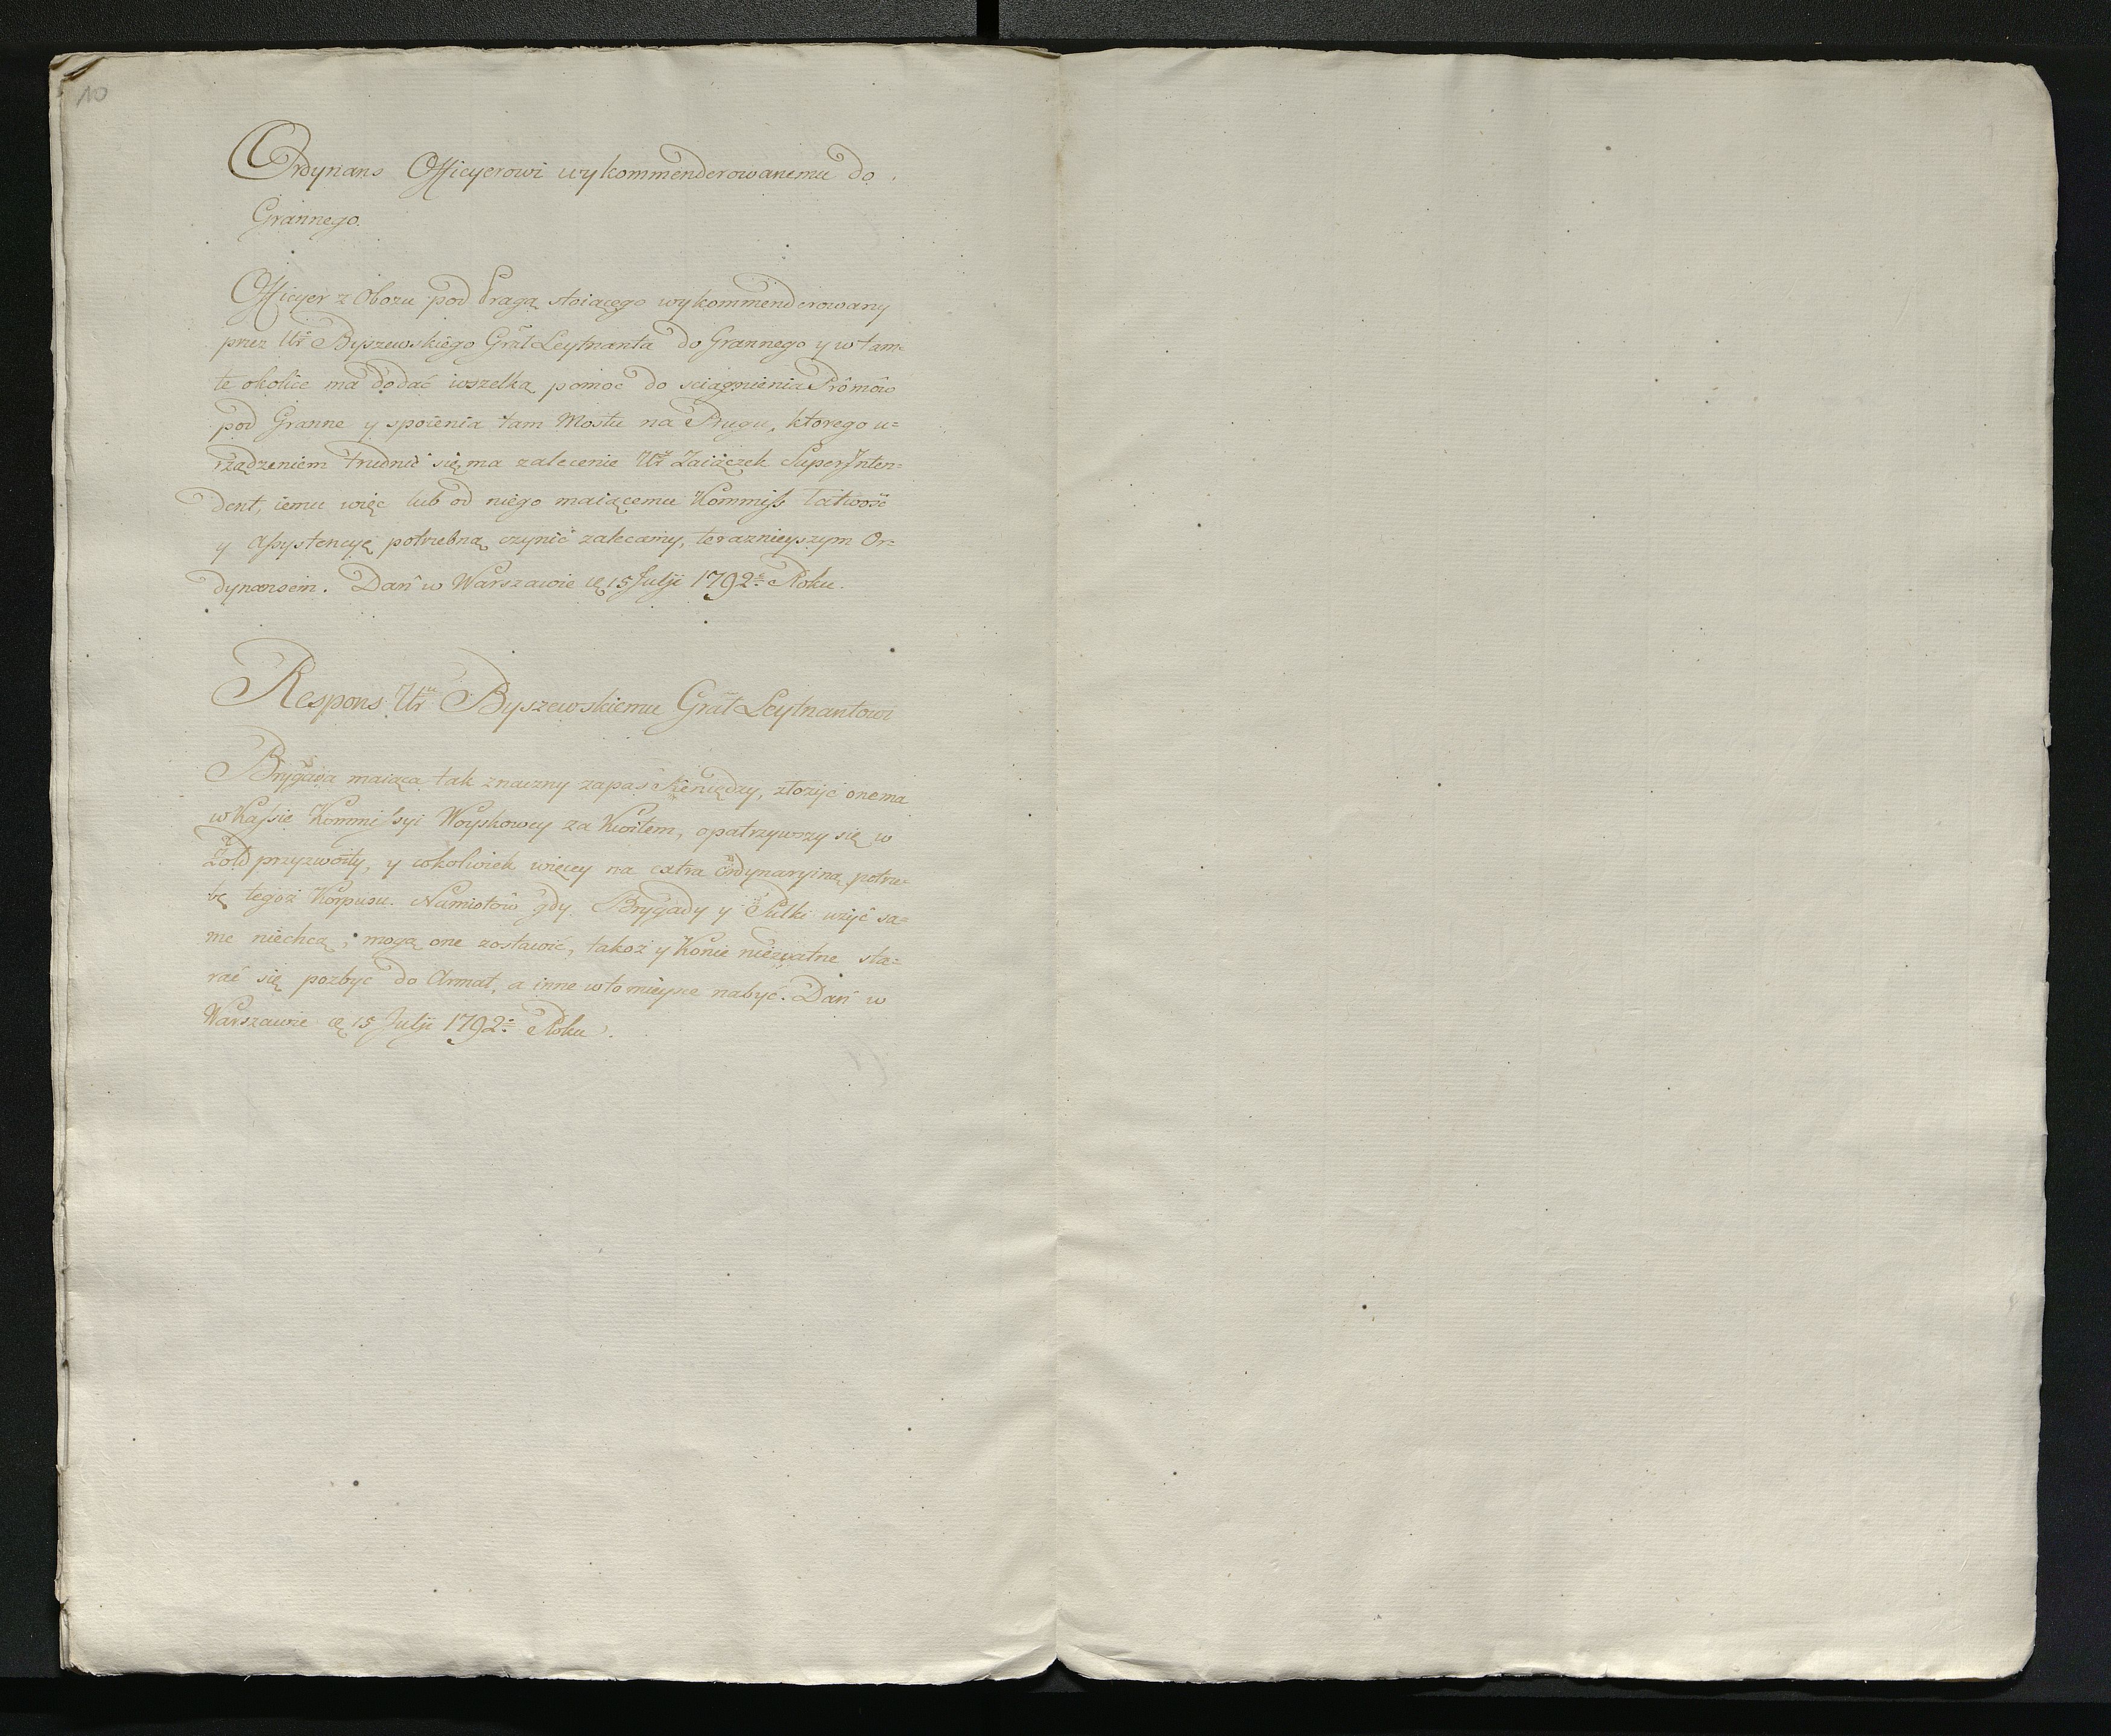 10
Ordynans Officyerowi wykommenderowanemu do
Grannego.
Officyer z Obozu pod Pragą stoiącego wykommenderowany
przez Ur Byszewskiego Grał Leytnanta do Grannego y w tam=
te okolice ma dodać wszelką pomoc do sciągnienia Promów
pod Granne y spoienia tam Mostu na Bugu, ktorego u=
rządzeniem trudnić się ma zalecenie Ur Zaiączek SuperInten=
dent, iemu więc lub od niego maiącemu Kommiss łatwość
y Assystencyę potrzebną czynić zalecamy, teraznieyszym Or=
dynansem. Dań w Warszawie 15 Julji 1792 Roku.
Respons Ur Byszewskiemu Grał Leytnantowi
Brygada maiąca tak znaczny zapas Pieniędzy, złożyć one ma
w Kassie Kommissyi Woyskowey za Kwitem, opatrzywszy się w
Żołd przyzwoity, y cokolwiek więcey na extra ordynaryiną potrze=
bę tegoż Korpusu. Namiotów gdy Brygady y Pułki użyć sa=
me niechcą, mogą one zostawić, takoż y Konie niezdatne sta=
rać się pozbyć do Armat, a inne w to mieysce nabyć. Dań w
Warszawie 15 Julji 1792 Roku.